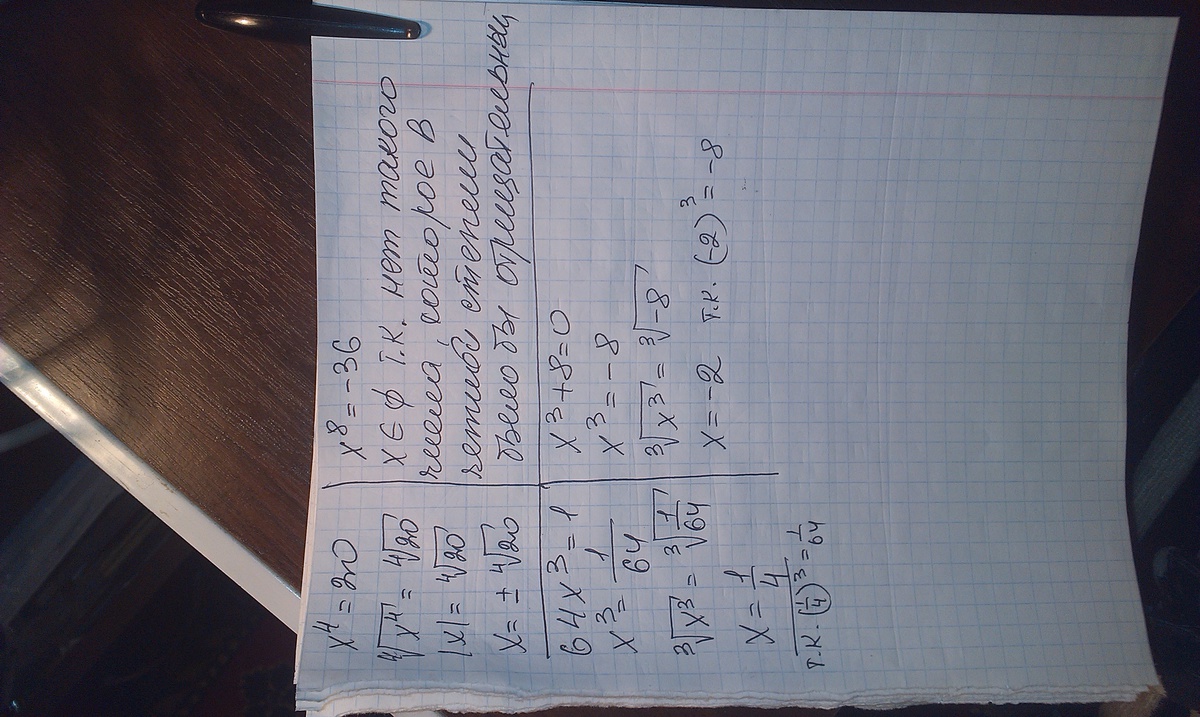 x⁴ = 20
⁴√x⁴ = ⁴√20
|x| = ⁴√20
x = ± ⁴√20
x⁸ = -36
x ∈ ϕ т.к. нет такого
числа, которое в
четной степени
было бы отрицательный
64x³ = 1
x³ = 1/64
³√x³ = ³√1/64
x = 1/4
т.к. (1/4)³ = 1/64
x³ + 8 = 0
x³ = -8
³√x³ = ³√-8
x = -2 т.к. (-2)³ = -8